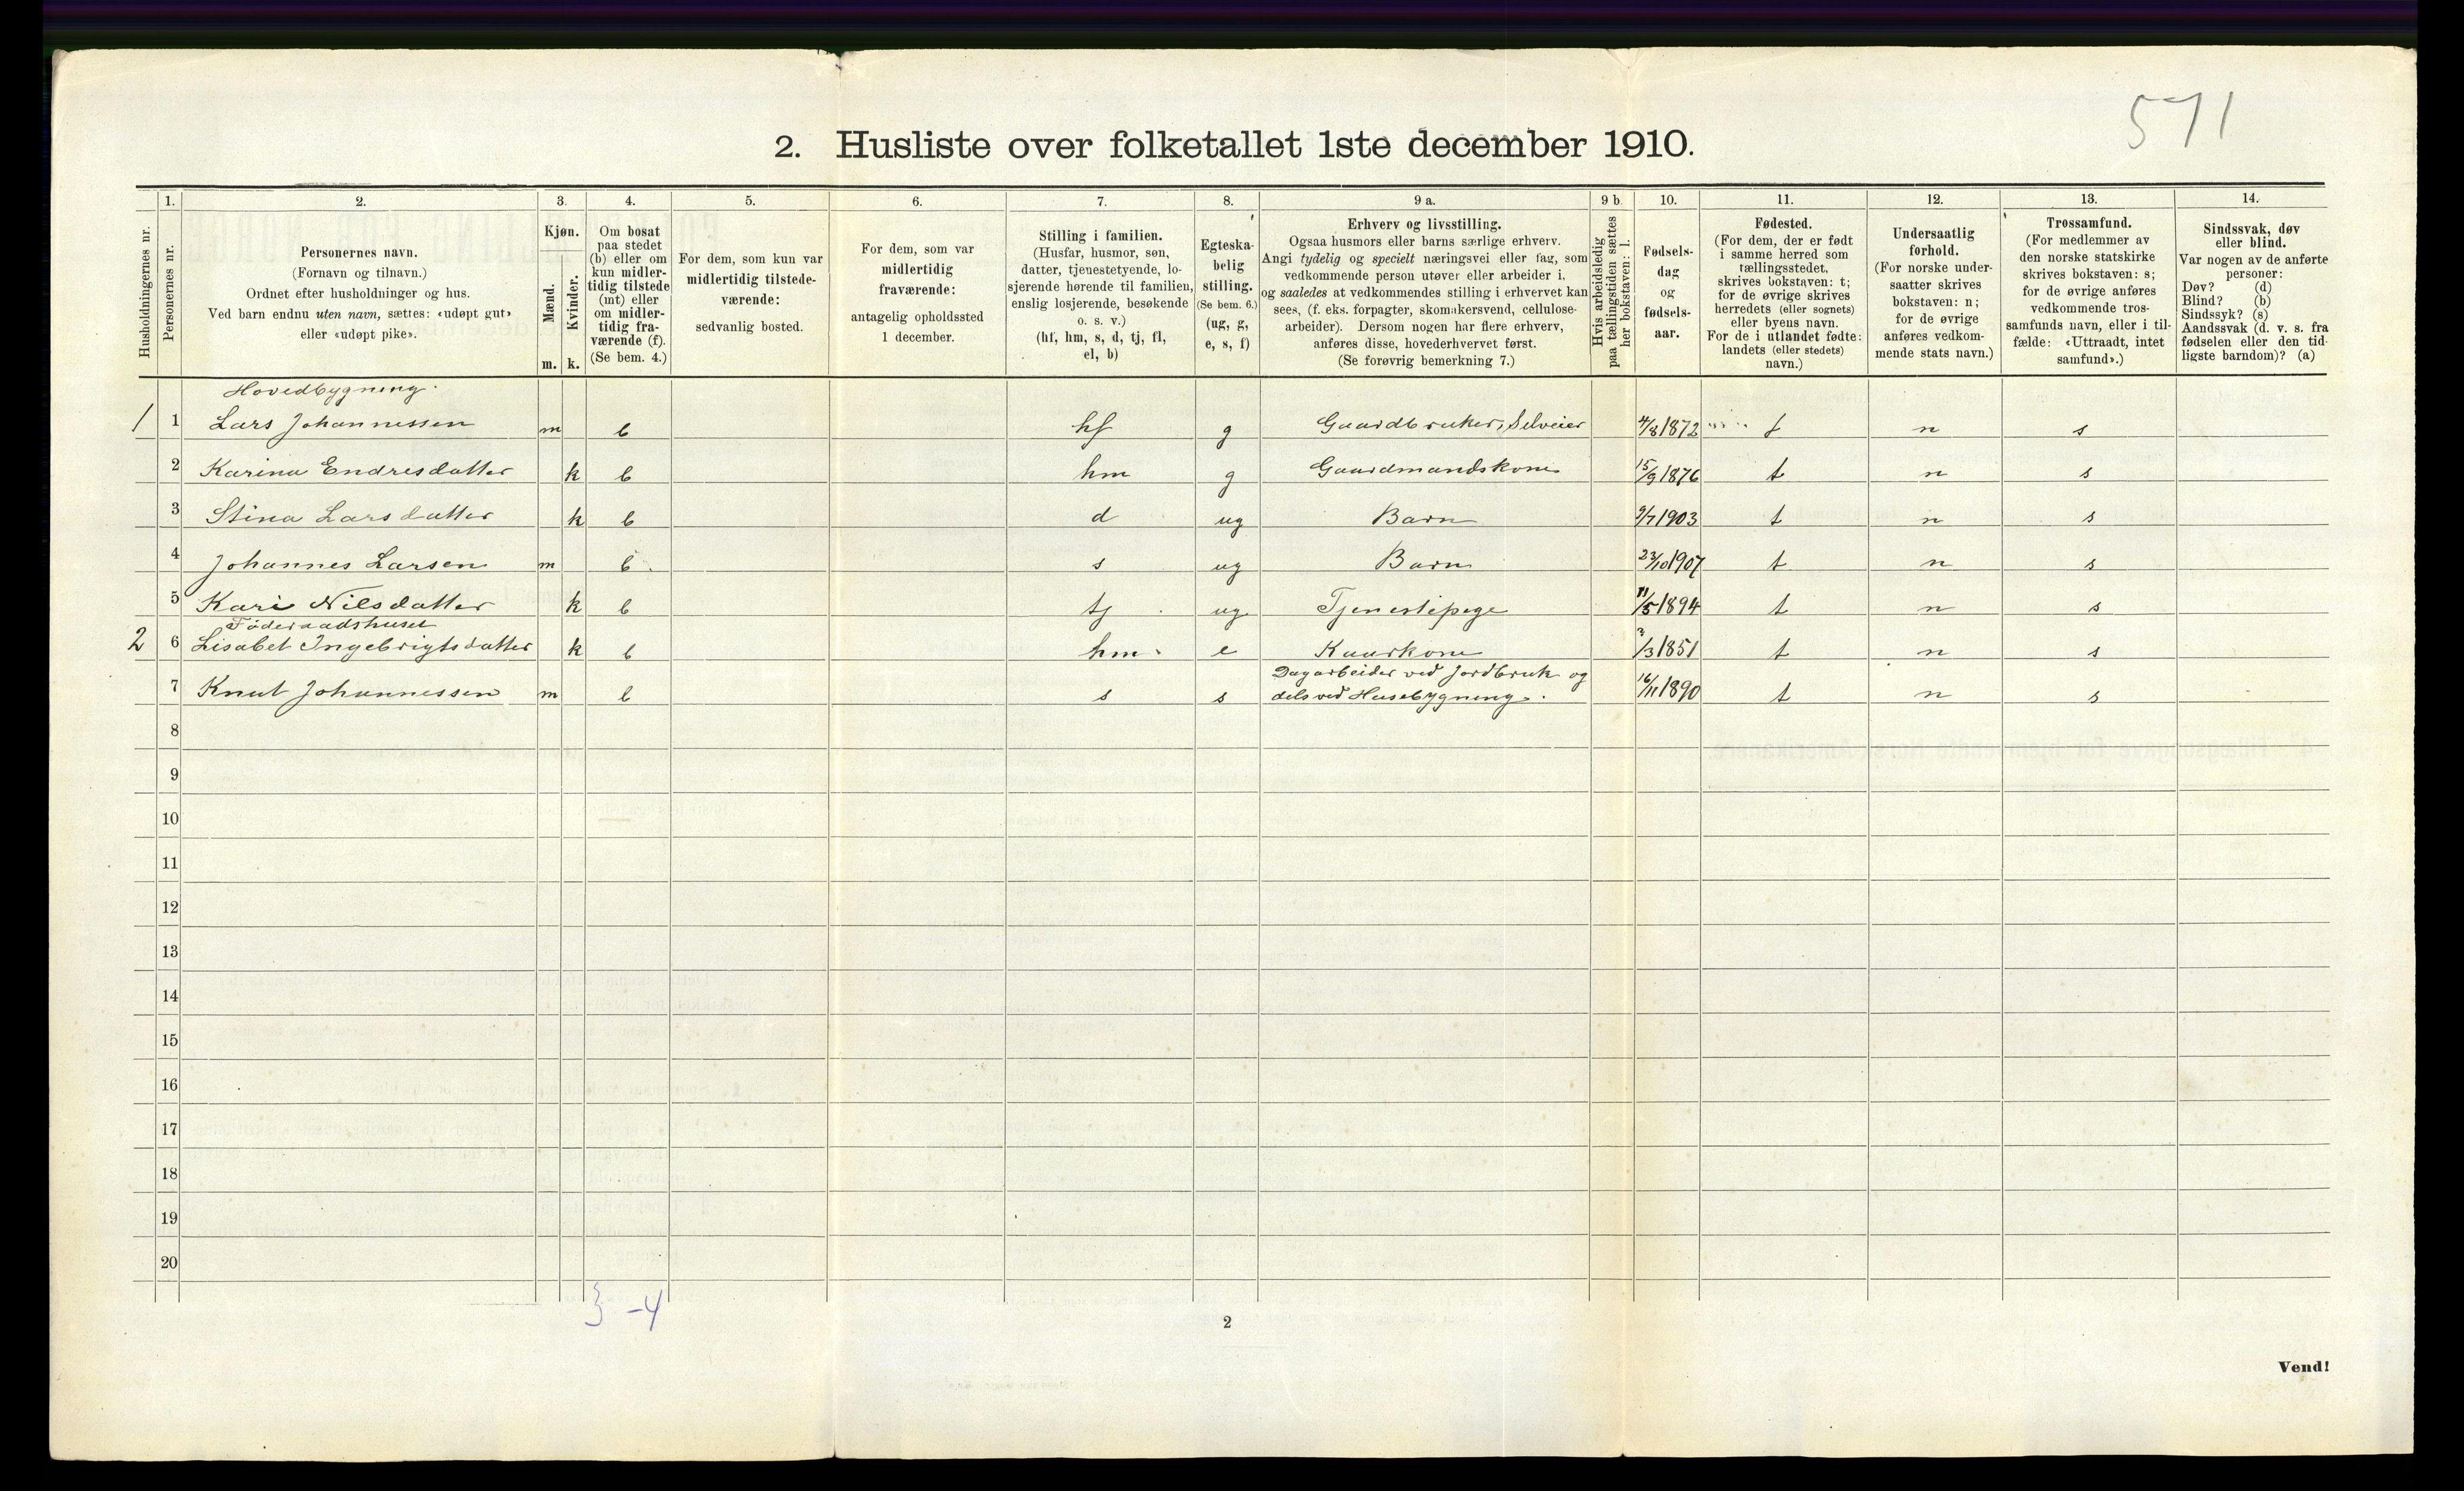 571
2. Husliste over folketallet 1ste december 1910.
Husholdningernes nr.
1.
Personernes nr.
2.
Personernes navn.
(Fornavn og tilnavn.)
Ordnet efter husholdninger og hus.
Ved barn endnu uten navn, sættes: «udøpt gut»
eller «udøpt pike».
3.
Kjøn.
Mænd.
Kvinder.
m. k.
4.
Om bosat
paa stedet
(b) eller om
kun midler-
tidig tilstede
(mt) eller
om midler-
tidig fra-
værende (f).
(Se bem. 4.)
5.
For dem, som kun var
midlertidig tilstede-
værende:
sedvanlig bosted.
6.
For dem, som var
midlertidig
fraværende:
antagelig opholdssted
1 december.
7.
Stilling i familien.
(Husfar, husmor, søn,
datter, tjenestetyende, lo-
sjerende hørende til familien,
enslig losjerende, besøkende
o. s. v.)
(hf, hm, s, d, tj, fl,
el, b)
8.
Egteska-
belig
stilling.
(Se bem. 6.)
(ug, g,
e, s, f)
9 a.
Erhverv og livsstilling.
Ogsaa husmors eller barns særlige erhverv.
Angi tydelig og specielt næringsvei eller fag, som
vedkommende person utøver eller arbeider i,
og saaledes at vedkommendes stilling i erhvervet kan
sees, (f. eks. forpagter, skomakersvend, cellulose-
arbeider). Dersom nogen har flere erhverv,
anføres disse, hovederhvervet først.
(Se forøvrig bemerkning 7.)
9 b.
Hvis arbeidsledig
paa tællingstiden sættes
her bokstaven: l.
10.
Fødsels-
dag
og
fødsels-
aar.
11.
Fødested.
(For dem, der er født
i samme herred som
tællingsstedet,
skrives bokstaven: t;
for de øvrige skrives
herredets (eller sognets)
eller byens navn.
For de i utlandet fødte:
landets (eller stedets)
navn.)
12.
Undersaatlig
forhold.
(For norske under-
saatter skrives
bokstaven: n;
for de øvrige
anføres vedkom-
mende stats navn.)
13.
Trossamfund.
(For medlemmer av
den norske statskirke
skrives bokstaven: s;
for de øvrige anføres
vedkommende tros-
samfunds navn, eller i til-
fælde: «Uttraadt, intet
samfund».)
14.
Sindssvak, døv
eller blind.
Var nogen av de anførte
personer:
Døv? (d)
Blind? (b)
Sindssyk? (s)
Aandssvak (d. v. s. fra
fødselen eller den tid-
ligste barndom)? (a)
Hovedbygning.
1 1 Lars Johannessen m b hf g Gaardbruker, Selveier 4/8 1872 t n s
2 Karina Endresdatter k b hm g Gaardmandskone 15/9 1876 t n s
3 Stina Larsdatter k b d ug Barn 9/7 1903 t n s
4 Johannes Larsen m b s ug Barn 23/10 1907 t n s
5 Kari Nilsdatter k b tj ug Tjenestepege 11/5 1894 t n s
Föderaadshuset
2 6 Lisabet Ingebrigtsdatter k b hm e Kaarkone 3/3 1851 t n s
7 Knut Johannessen m b s s Dagarbeider ved Jordbruk og
dels ved Husebygning. 16/11 1890 t n s
8
9
10
11
12
13
14
15
16
17
18
19
20
} -4
2
Vend!